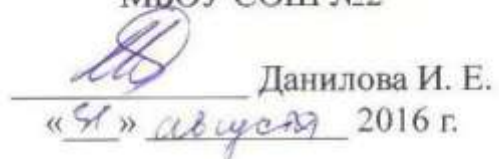 МБОУ СОШ №2
Данилова И. Е.
« » августа 2016 г.